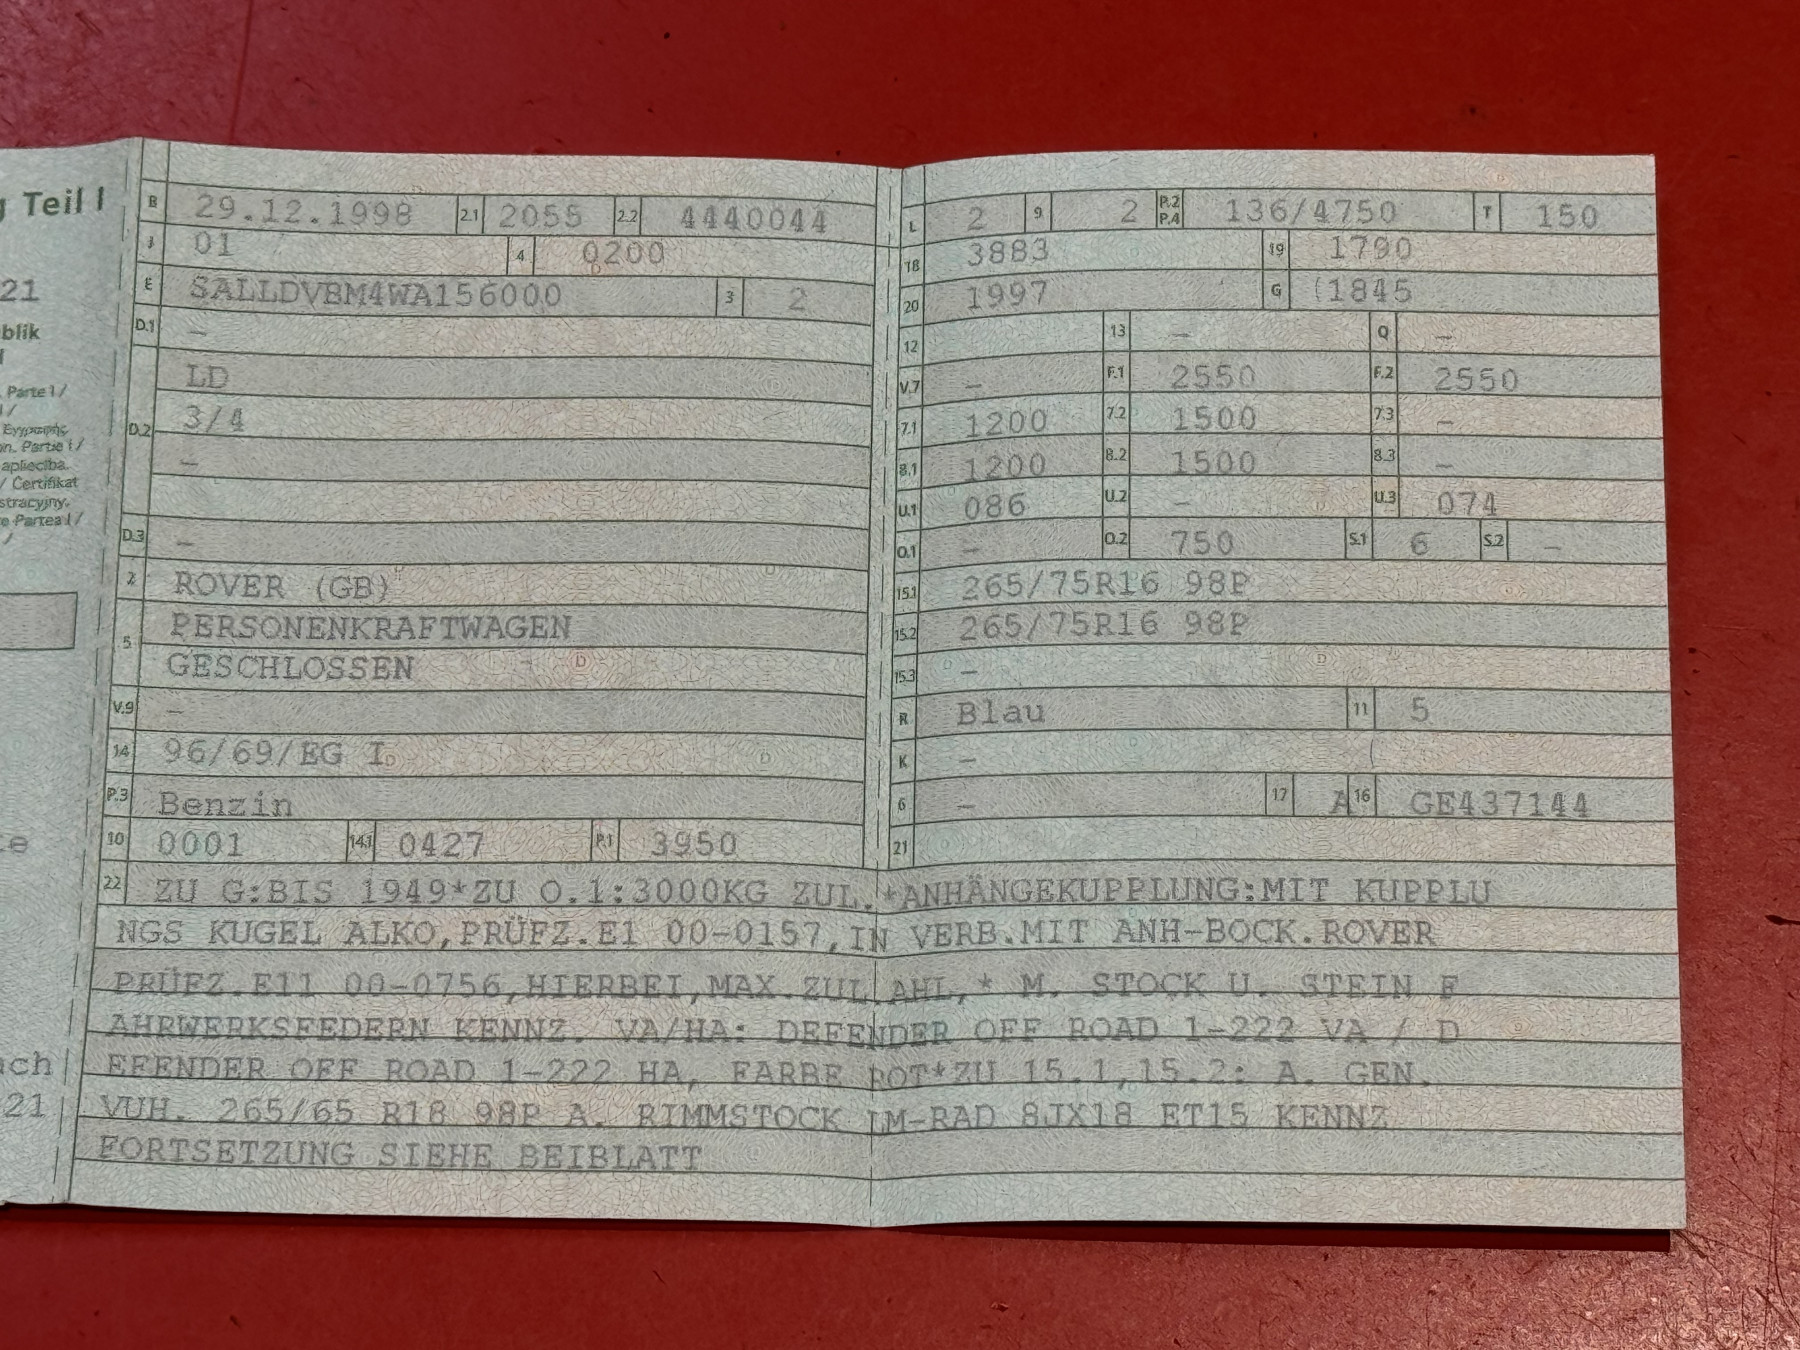 Teil I
21
blik
Parte I /
I /
Εγγραφής
Partie I /
apliecība.
/ Certifikat
stracyjny.
Partea I /
ach
21
B 29.12.1998 2.1 2055 2.2 4440044
J 01 4 0200
E SALLDVBM4WA156000 3 2
D.1 –
D.2 LD
3/4
–
D.3 –
2 ROVER (GB)
5 PERSONENKRAFTWAGEN
GESCHLOSSEN
V.9 –
14 96/69/EG I
P.3 Benzin
10 0001 14.1 0427 P.1 3950
L 2 9 2 P.2 P.4 136/4750 T 150
18 3883 19 1790
20 1997 G (1845
12 13 – Q –
V.7 – F.1 2550 F.2 2550
7.1 1200 7.2 1500 7.3 –
8.1 1200 8.2 1500 8.3 –
U.1 086 U.2 – U.3 074
O.1 – O.2 750 S.1 6 S.2 –
15.1 265/75R16 98P
15.2 265/75R16 98P
15.3 –
R Blau 11 5
K –
6 – 17 A 16 GE437144
21
22 ZU G:BIS 1949*ZU O.1:3000KG ZUL.*ANHÄNGEKUPPLUNG:MIT KUPPLU
NGS KUGEL ALKO,PRÜFZ.E1 00-0157,IN VERB.MIT ANH-BOCK.ROVER
PRÜFZ.E11 00-0756,HIERBEI,MAX.ZUL AHL,* M. STOCK U. STEIN F
AHRWERKSFEDERN KENNZ. VA/HA: DEFENDER OFF ROAD 1-222 VA / D
EFENDER OFF ROAD 1-222 HA, FARBE ROT*ZU 15.1,15.2: A. GEN.
VUH. 265/65 R18 98P A. RIMMSTOCK LM-RAD 8JX18 ET15 KENNZ
FORTSETZUNG SIEHE BEIBLATT